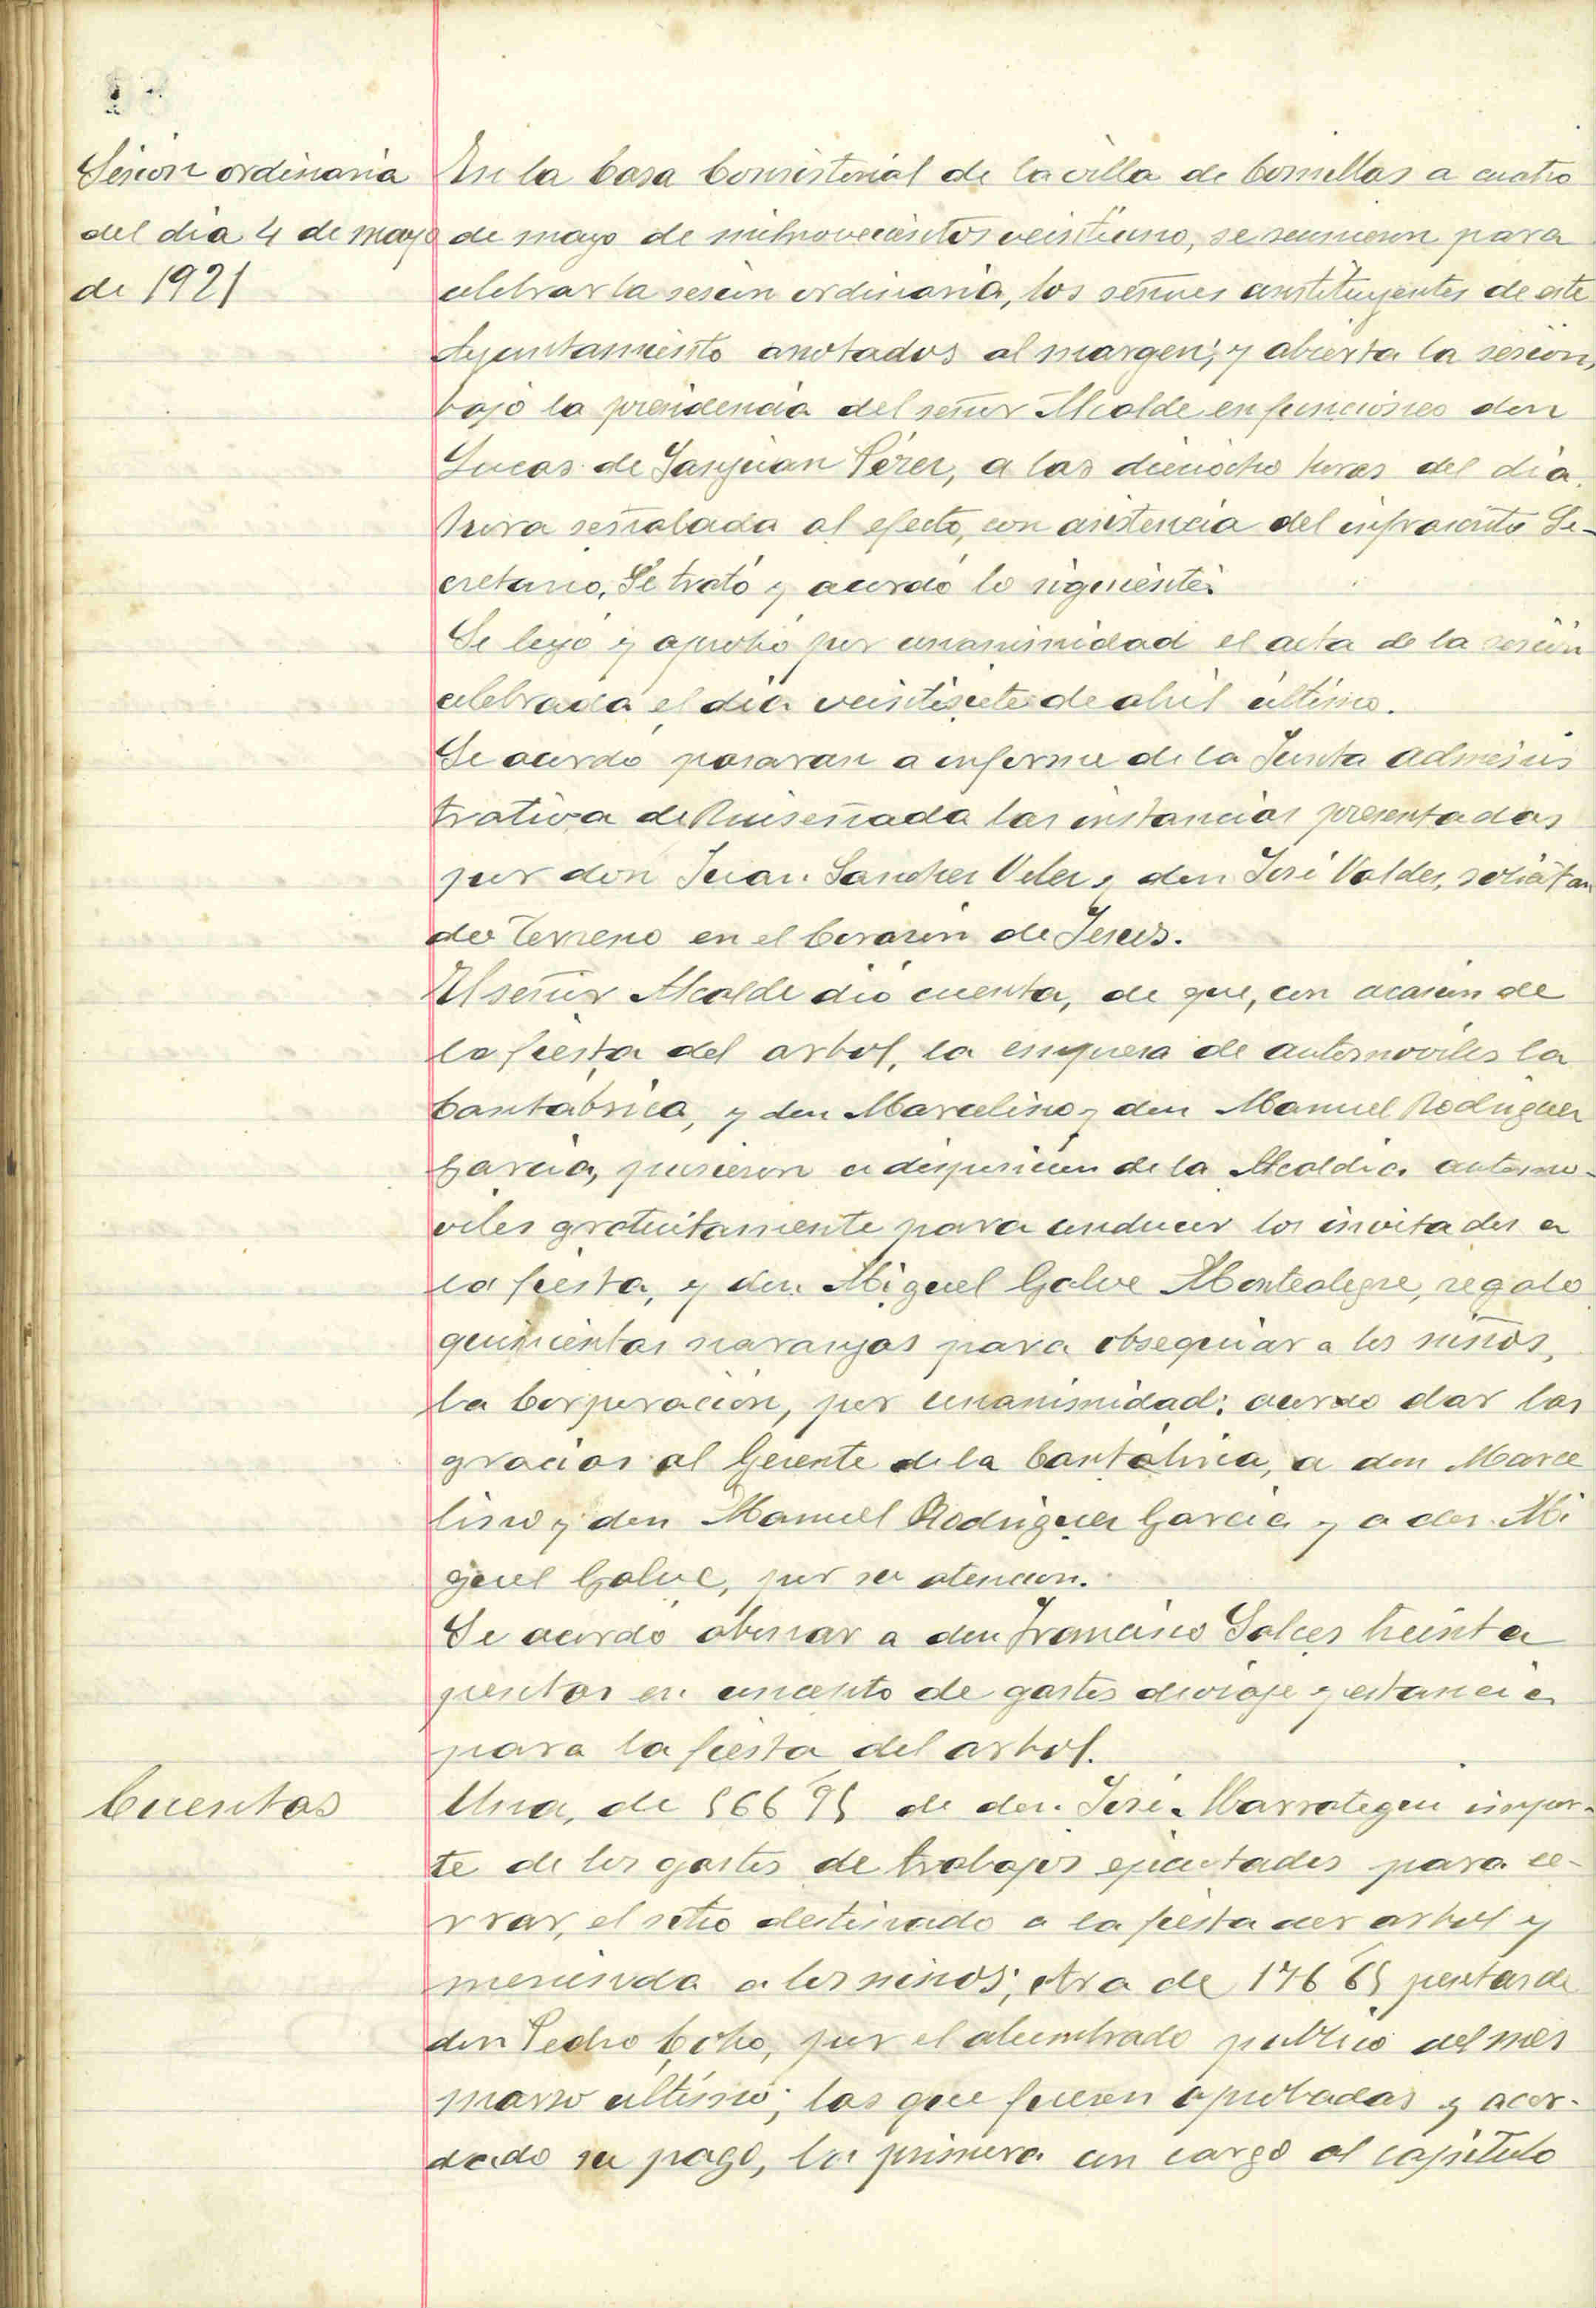 Sesion ordinaria
del dia 4 de mayo
de 1921
En la Casa Consistorial de la villa de Comillas a cuatro
de mayo de mil novecientos veintiuno, se reunieron para
celebrar la sesion ordinaria, los señores constituyentes de este
Ayuntamiento anotados al margen, y abierta la sesion,
bajo la presidencia del señor Alcalde en funciones don
Lucas de Sanjuan Pérez, a las dieciocho horas del dia,
hora señalada al efecto, con asistencia del infrascrito Se-
cretario, Se trató y acordó lo siguiente:
Se leyó y aprobó por unanimidad el acta de la sesion
celebrada el dia veintisiete de abril último.
Se acordó pasaran a informe de la Junta adminis
trativa de Ruiseñada las instancias presentadas
por don Juan Sanchez Velez y don José Valdes, solicitan
do terreno en el Corazon de Jesus.
El señor Alcalde dió cuenta, de que, con ocasion de
la fiesta del arbol, la empresa de automoviles la
Cantabrica, y don Marcelino y don Manuel Rodriguez
Garcia, pusieron a disposicion de la Alcaldia automo-
viles gratuitamente para conducir los invitados a
la fiesta, y don Miguel Galve Montealegre, regaló
quinientas naranjas para obsequiar a los niños,
la Corporacion, por unanimidad; acordó dar las
gracias al Gerente de la Cantabrica, a don Marce
lino y don Manuel Rodriguez Garcia y a don Mi
guel Galve, por su atencion.
Se acordó abonar a don Francisco Salces treinta
pesetas en concepto de gastos de viaje y estancia
para la fiesta del arbol.
Cuentas
Una, de de don José Marrategui impor-
te de los gastos de trabajos ejecutados para ce-
rrar, el sitio destinado a la fiesta del arbol y
merienda a los niños; otra de 176 65 pesetas de
don Pedro Cobo, por el alumbrado publico del mes
marzo último; las que fueron aprobadas y acor-
dado su pago, la primera con cargo al capitulo